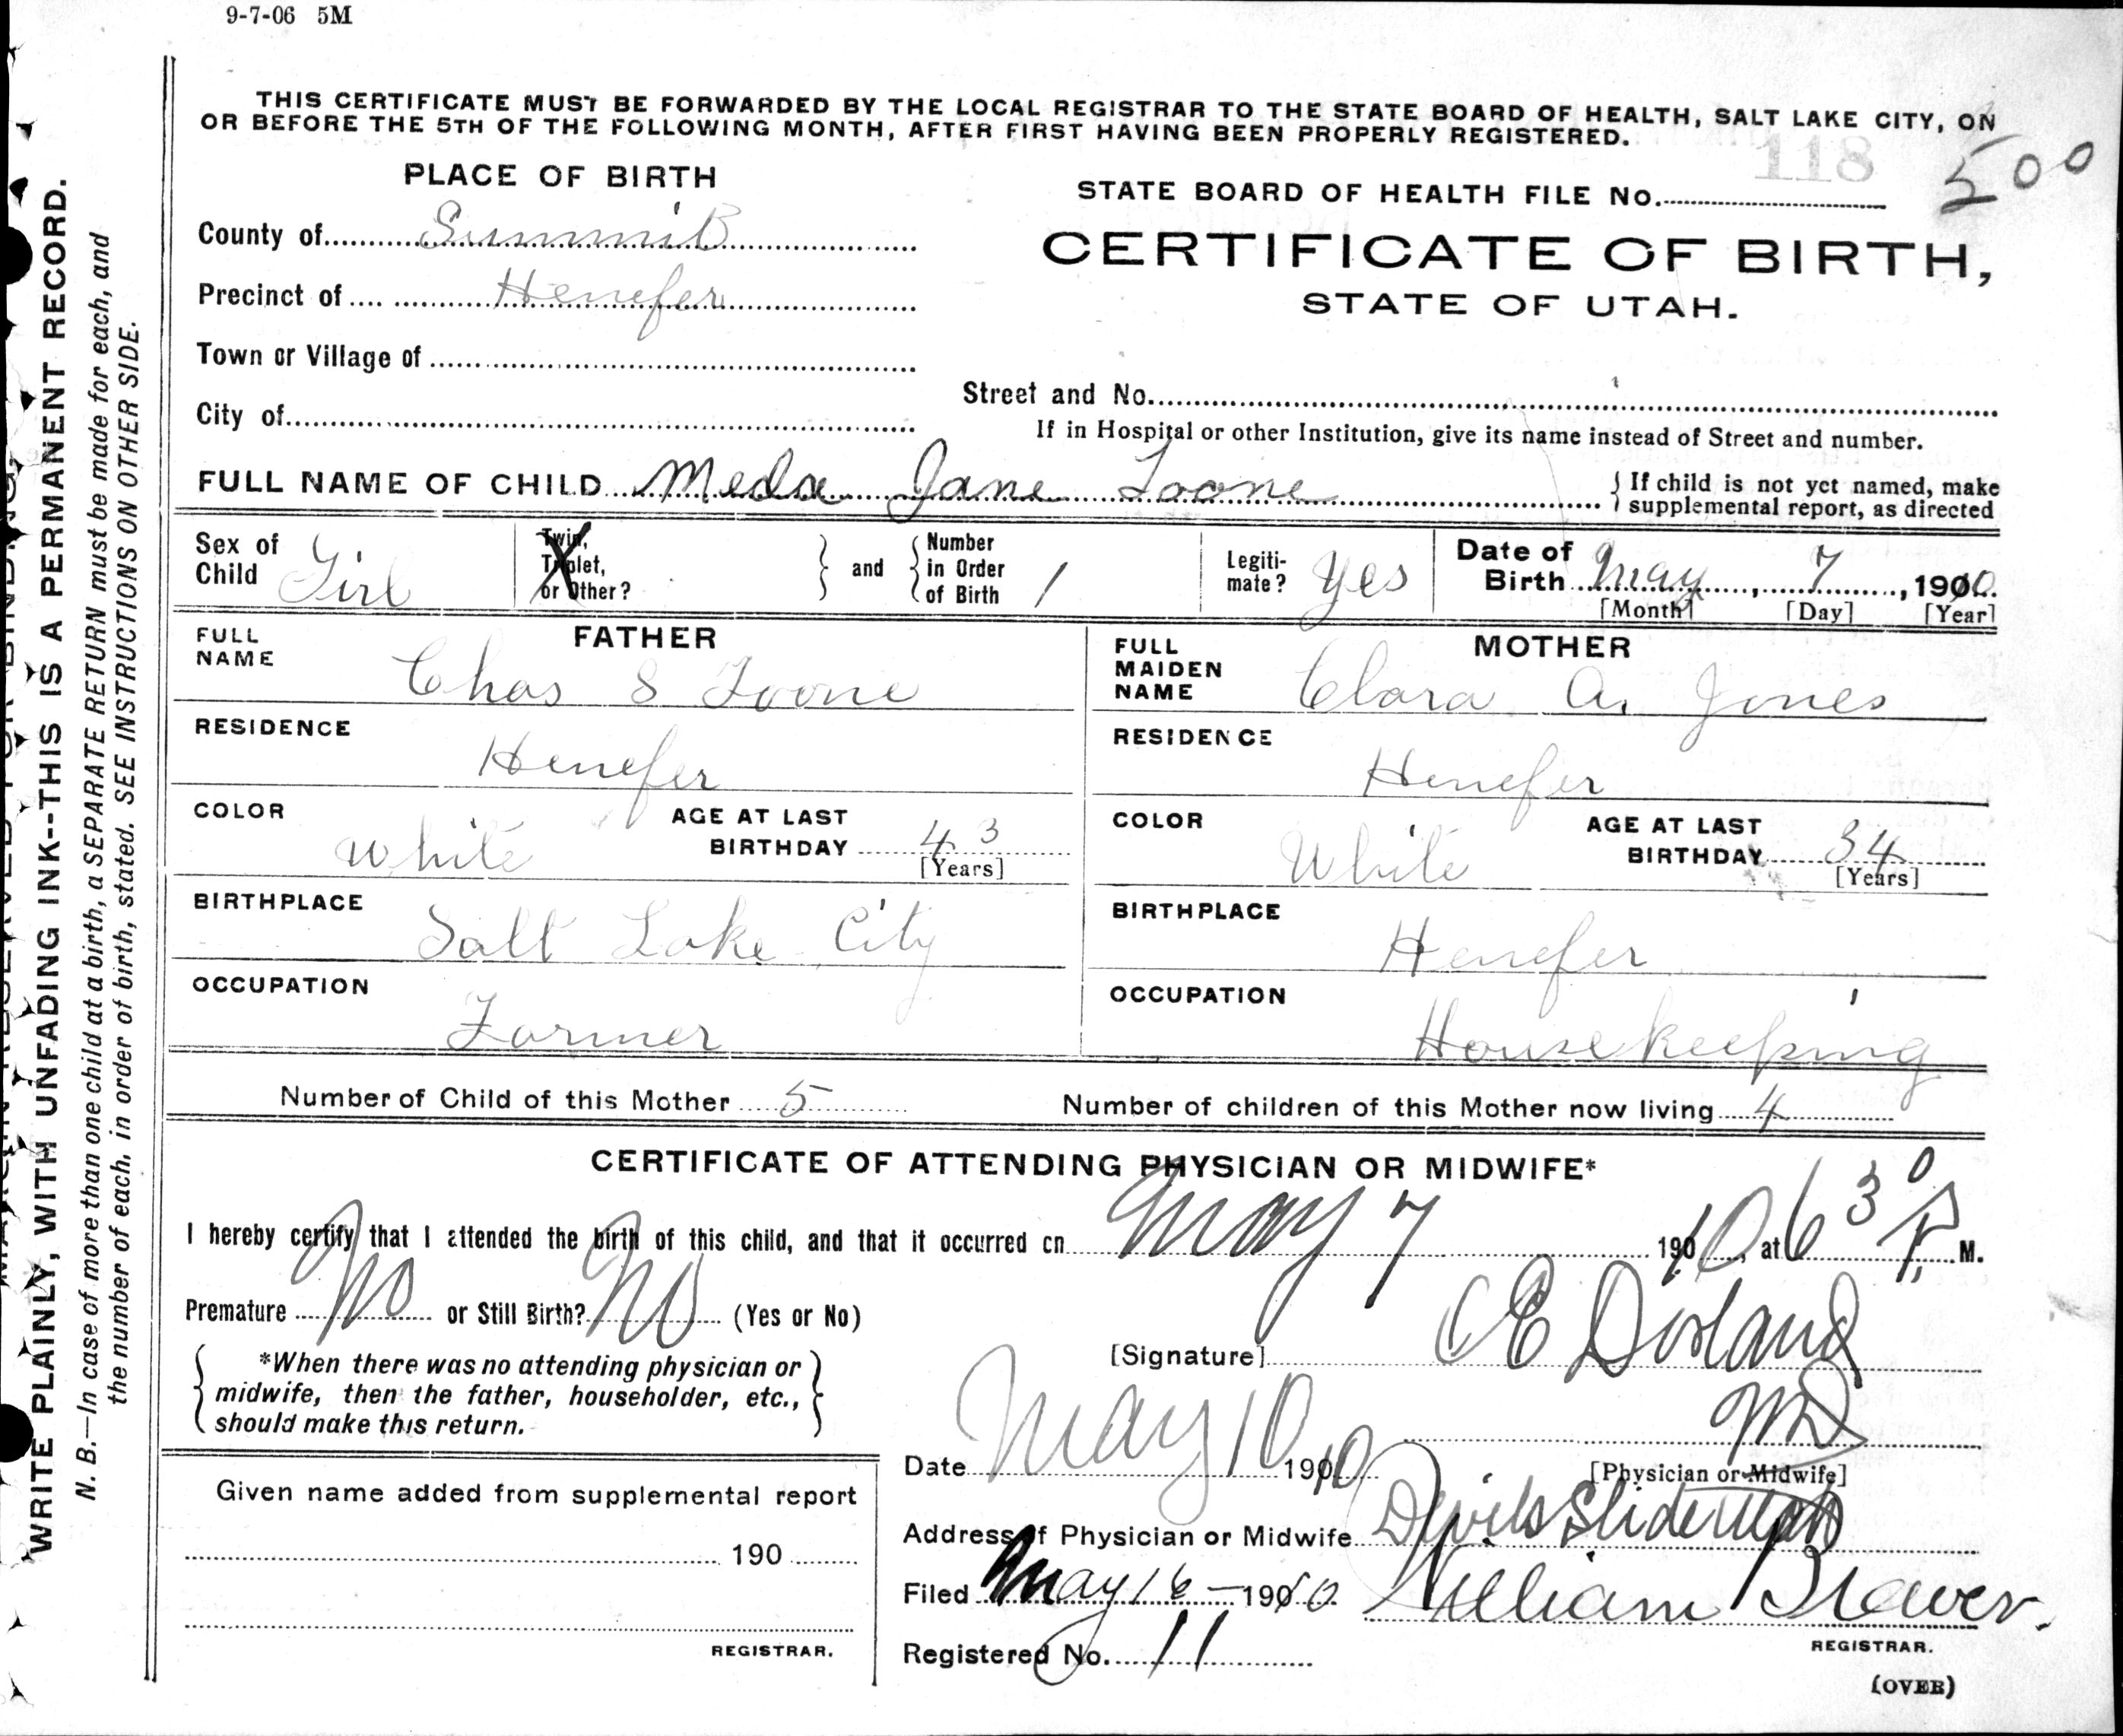 9-7-06 5M
THIS CERTIFICATE MUST BE FORWARDED BY THE LOCAL REGISTRAR TO THE STATE BOARD OF HEALTH, SALT LAKE CITY, ON
OR BEFORE THE 5TH OF THE FOLLOWING MONTH, AFTER FIRST HAVING BEEN PROPERLY REGISTERED.
118 500
PLACE OF BIRTH
STATE BOARD OF HEALTH FILE No.
County of Summit
CERTIFICATE OF BIRTH,
STATE OF UTAH.
Precinct of Henefer
Town or Village of
Street and No.
City of
If in Hospital or other Institution, give its name instead of Street and number.
FULL NAME OF CHILD Meda Jane Toone { If child is not yet named, make
supplemental report, as directed
Sex of Child Girl
Twin, Triplet, or Other? } and { Number in Order of Birth 1
Legitimate? Yes
Date of Birth May, 7, 1910
[Month] [Day] [Year]
FATHER
FULL NAME Chas S Toone
RESIDENCE Henefer
COLOR White AGE AT LAST BIRTHDAY 43 [Years]
BIRTHPLACE Salt Lake City
OCCUPATION Farmer
MOTHER
FULL MAIDEN NAME Clara A. Jones
RESIDENCE Henefer
COLOR White AGE AT LAST BIRTHDAY 34 [Years]
BIRTHPLACE Henefer
OCCUPATION Housekeeping
Number of Child of this Mother 5 Number of children of this Mother now living 4
CERTIFICATE OF ATTENDING PHYSICIAN OR MIDWIFE*
I hereby certify that I attended the birth of this child, and that it occurred on May 7 1910, at 6 30 P. M.
Premature No or Still Birth? No (Yes or No)
[Signature] Dorland
MD
[Physician or Midwife]
{ *When there was no attending physician or
midwife, then the father, householder, etc.,
should make this return. }
Date May 10 1910
Address of Physician or Midwife Devils Slide Utah
Filed May 16 - 1910 William Brewer.
REGISTRAR.
Registered No. 11
(OVER)
Given name added from supplemental report
190
REGISTRAR.
WRITE PLAINLY, WITH UNFADING INK--THIS IS A PERMANENT RECORD.
N. B.—In case of more than one child at a birth, a SEPARATE RETURN must be made for each, and
the number of each, in order of birth, stated. SEE INSTRUCTIONS ON OTHER SIDE.